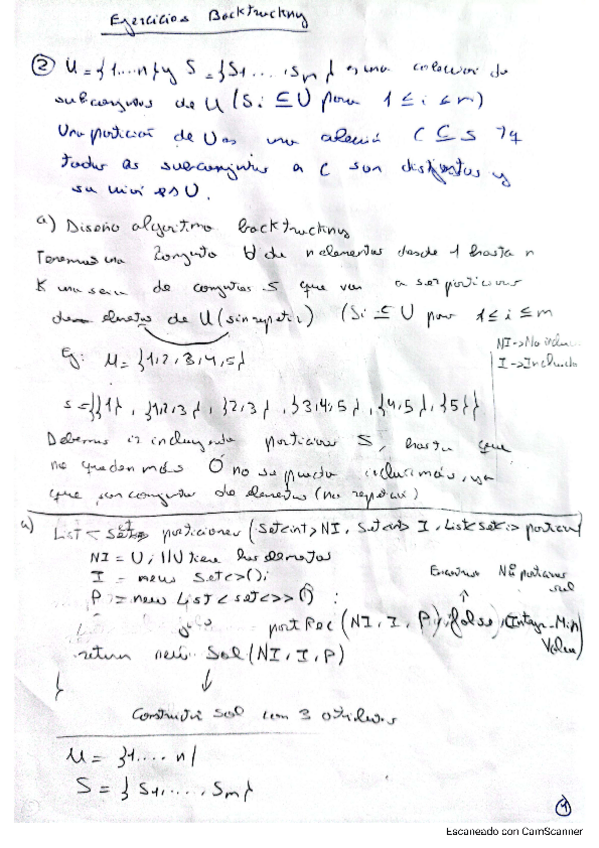 Ejercicios Backtracking
② U = {1...n} y S = {S1...., Sm} es una colección de
subconjuntos de U (Si ⊆ U para 1 ≤ i ≤ m)
Una partición de U es una colección C ⊆ S tq
todos los subconjuntos a C son disjuntos y
su unión es U.
a) Diseño algoritmo backtracking
Tenemos una conjunto U de n elementos desde 1 hasta n
una serie de conjuntos S que van a ser particiones
de U (sin repetir) (Si ⊆ U para 1 ≤ i ≤ m
Ej: U = {1,2,3,4,5}
NI → No
I → Incluido
S = {{1}, {1,2,3}, {2,3}, {3,4,5}, {4,5}, {5}}
Debemos ir incluyendo particiones S, hasta que
no queden más O no se pueda incluir más, ya
que son conjuntos de elementos (no repetir)
a) List<Set> particiones (Set<int> NI, Set<int> I, List<Set<>>
NI = U; //U tiene los elementos
I = new Set<>();
P = new List<Set<>>() ;
Nº particiones
sol
partRec (NI, I, P, false, Integer.Min
Value)
return new Sol (NI, I, P)
}
Construir sol con 3 atributos
U = {1....n}
S = {S1,...., Sm}
①
Escaneado con CamScanner